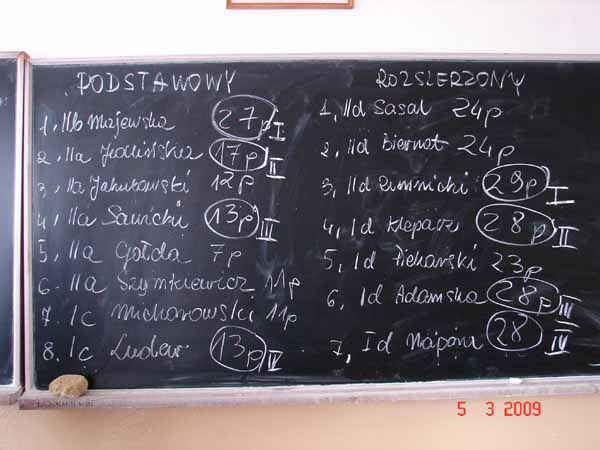 PODSTAWOWY
1, IIb Majewska 27p I
2. IIa Jodlińska 17p II
3, IIa Jakubowski 12p
4, IIa Sawicki 13p III
5, IIa Gołda 7p
6. IIa Szymkiewicz 11p
7. Ic Michorowski 11p
8. Ic 13p IV
ROZSZERZONY
1, IId Sasal 24p
2, IId Biernat 24p
3, IId Rumnicki 29p I
4, Id Klepacz 28p II
5, Id Piekarski 23p
6, Id Adamska 28p III
7, Id Napora 28 IV
5 3 2009